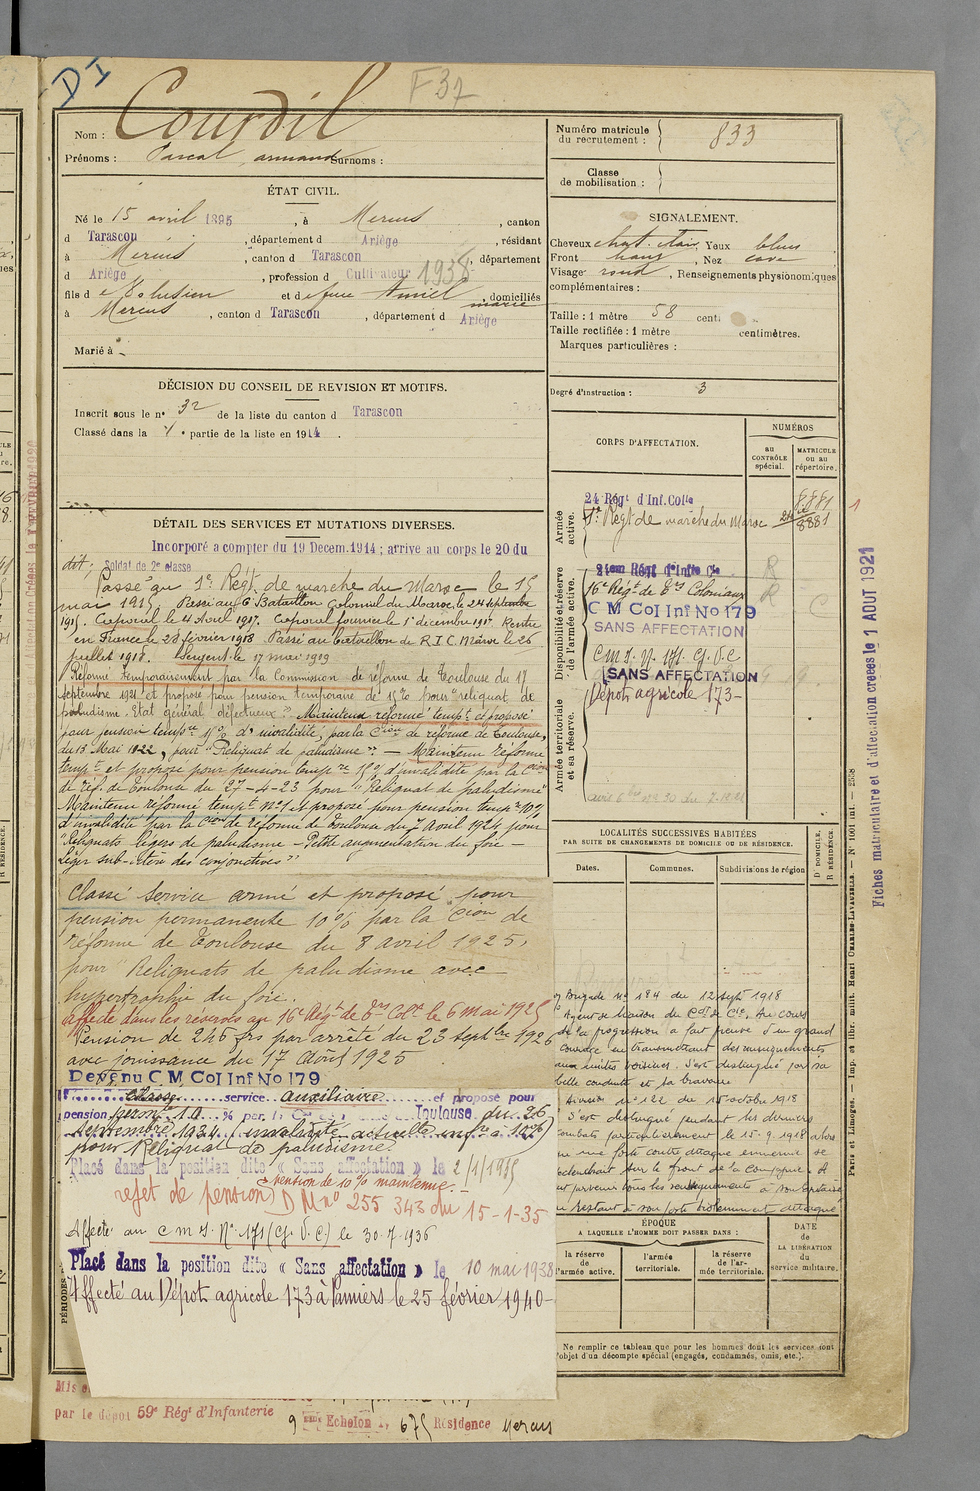 DI
F37
Nom : Courdil
Prénoms : Pascal, armand Surnoms :
ÉTAT CIVIL.
Né le 15 avril 1895, à Mercus, canton
d Tarascon, département d Ariège, résidant
à Mercus, canton d Tarascon, département
d Ariège, profession d Cultivateur 1938
fils d e Volusien et d e Amiel marie, domiciliés
à Mercus, canton d Tarascon, département d Ariège
Marié à
DÉCISION DU CONSEIL DE REVISION ET MOTIFS.
Inscrit sous le n° 32 de la liste du canton d Tarascon
Classé dans la 1e partie de la liste en 1914.
DÉTAIL DES SERVICES ET MUTATIONS DIVERSES.
Incorporé a compter du 19 Decem. 1914 ; arrive au corps le 20 du
dit; Soldat de 2e classe
Passé au 1er Régt de marche du Maroc le 15
mai 1915. Passé au 6e Bataillon Colonial du Maroc, le 24 septembre
1915. Caporal le 4 Avril 1917. Caporal fourrier le 1er décembre 1917. Rentré
en France le 28 février 1918. Passé au bataillon de R.I.C. Maroc le 26
juillet 1918. Sergent le 17 mai 1919
Réformé temporairement par la Commission de réforme de Toulouse du 17
septembre 1921 et proposé pour pension temporaire de 15% pour "reliquat de
paludisme. Etat général défectueux". Maintenu réformé tempt et proposé
pour pension tempre 15% d'invalidité, par la Cion de réforme de Toulouse,
du 13 Mai 1922, pour "Reliquat de paludisme". — Maintenu réformé
tempt et proposé pour pension tempre 15% d'invalidité par la Cion
de réf. de Toulouse du 27-4-23 pour "Reliquat de paludisme"
Maintenu réformé tempt n°1 et proposé pour pension tempre 10%
d'invalidité par la Cion de réforme de Toulouse du 7 Avril 1924 pour
"Reliquats légers de paludisme — Petite augmentation du foie —
Léger sub-ictère des conjonctives"
Classé service armé et proposé pour
pension permanente 10% par la Cion de
réforme de Toulouse du 8 avril 1925,
pour "Reliquats de paludisme avec
hypertrophie du foie.
affecté dans les réserves au 16e Régt de Tirs Colx le 6 mai 1925
Pension de 246 frs par arrêté du 23 septbre 1926
avec jouissance du 17 Août 1925
Devenu C M Col Inf No 179
Classé service auxiliaire et proposé pour
pension permte 10 % par Toulouse du 26
septembre 1934 (invalidité actuelle infre à 10%)
pour Reliquat de paludisme.
Placé dans la position dite « Sans affectation » le 2/1/1935
Pension de 10% maintenue.
rejet de pension D M n° 255 343 du 15-1-35
Affecté au C M I. N° 171 (G. V. C.) le 30-7-1936
Placé dans la position dite « Sans affectation » le 10 mai 1938
Affecté au Dépôt agricole 173 à Pamiers le 25 février 1940-
PÉRIODES
Mis e
par le dépôt 59e Régt d'Infanterie
9 Echelon 1, 675 Résidence Mercus
Numéro matricule du recrutement : 833
Classe de mobilisation :
SIGNALEMENT.
Cheveux chat. clair, Yeux bleus
Front haut, Nez cave
Visage rond, Renseignements physionomiques
complémentaires :
Taille : 1 mètre 58 centi
Taille rectifiée : 1 mètre centimètres.
Marques particulières :
Degré d'instruction : 3
CORPS D'AFFECTATION.
NUMÉROS
au CONTRÔLE spécial.
MATRICULE ou au répertoire.
Armée active.
24 Régt d'Inf. Colle
1er Regt de marche du Maroc 8881
Disponibilité et réserve de l'armée active.
16e Régt de Trs Coloniaux
C M Col Inf No 179
SANS AFFECTATION
C M I. N. 171. G. V. C
SANS AFFECTATION
Dépôt agricole 173-
Armée territoriale et sa réserve.
LOCALITÉS SUCCESSIVES HABITÉES
PAR SUITE DE CHANGEMENTS DE DOMICILE OU DE RÉSIDENCE.
Dates. Communes. Subdivisions de région
D. DOMICILE. R. RÉSIDENCE.
Brigade n° 184 du 12 sept 1918
Agent de liaison du Cdt de Cie. Au cours
de la progression a fait preuve d'un grand
courage en transmettant des renseignements
aux unités voisines. S'est distingué par sa
belle conduite et sa bravoure
n° 122 du 15 octobre 1918
S'est distingué pendant les derniers
combats particulièrement le 15-9-1918 alors
qu'une forte contre attaque ennemie se
déclenchait sur le front de la Compagnie. A
fait parvenir tous les renseignements à son Capitaine
en restant à son poste violemment attaqué
ÉPOQUE
A LAQUELLE L'HOMME DOIT PASSER DANS :
la réserve de l'armée active.
l'armée territoriale.
la réserve de l'armée territoriale.
DATE DE LA LIBÉRATION du service militaire.
Ne remplir ce tableau que pour les hommes dont les services sont
l'objet d'un décompte spécial (engagés, condamnés, omis, etc.).
Fiches matriculaire et d'affectation créées le 1 AOUT 1921
Paris et Limoges. — Imp. et libr. milit. Henri CHARLES-LAVAUZELLE. — N° 1001 int. — 2558